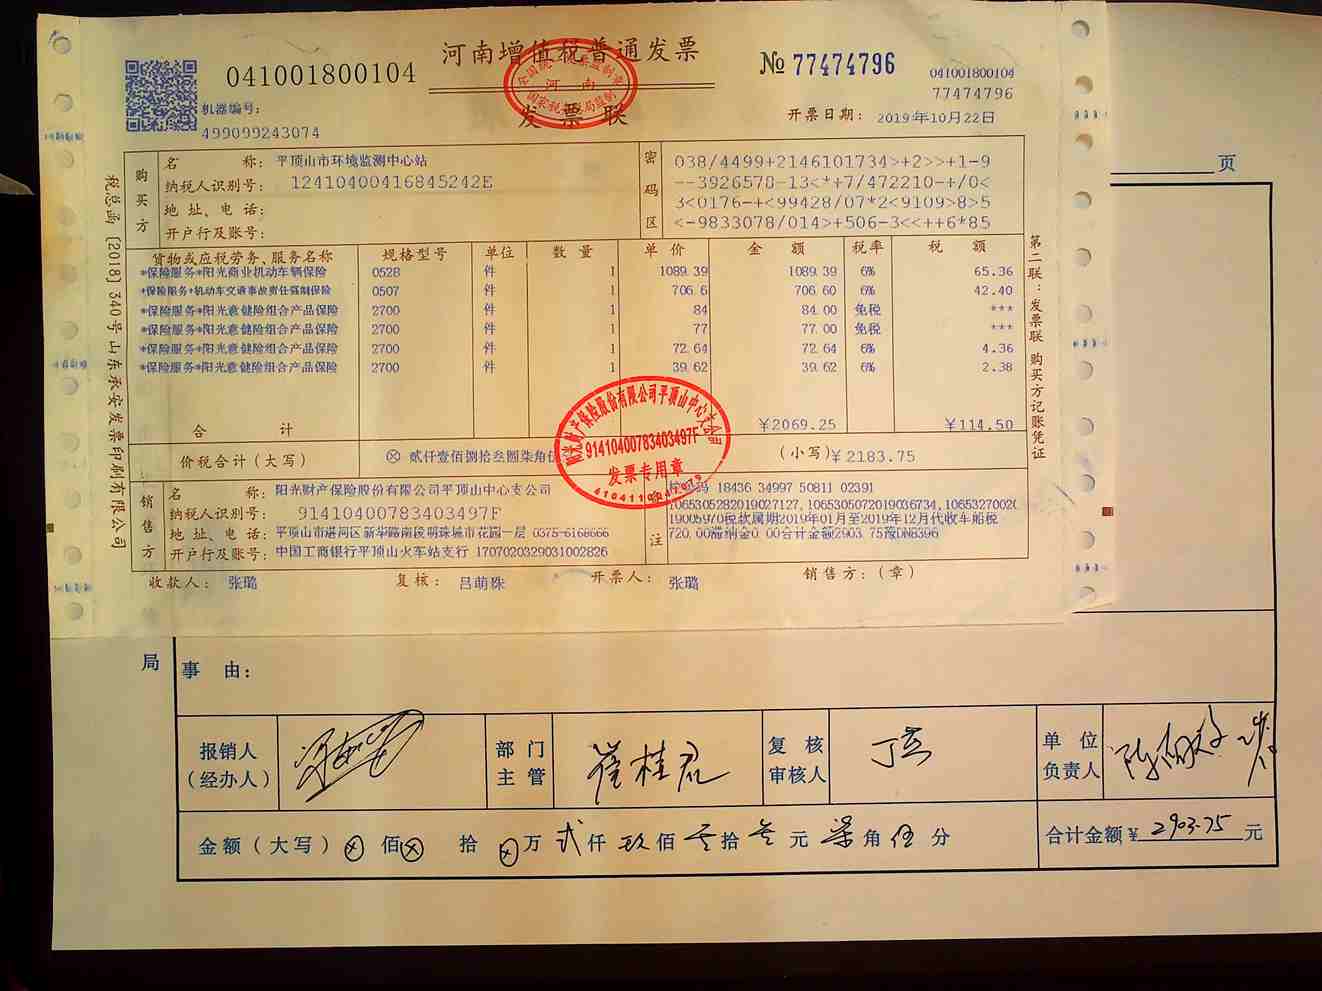 河南增值税普通发票
发票联
041001800104
№ 77474796
041001800104
77474796
机器编号:
499099243074
开票日期: 2019年10月22日
税总函[2018]340号山东承安发票印刷有限公司
购买方
名 称: 平顶山市环境监测中心站
纳税人识别号: 12410400416845242E
地 址、电 话:
开户行及账号:
密码区
038/4499+2146101734>+2>>+1-9
--3926578-13<*+7/472210-+/0<
3<0176-+<99428/07*2<9109>8>5
<-9833078/014>+506-3<<++6*85
货物或应税劳务、服务名称 规格型号 单位 数 量 单 价 金 额 税率 税 额
*保险服务*阳光商业机动车辆保险 0528 件 1 1089.39 1089.39 6% 65.36
*保险服务*机动车交通事故责任强制保险 0507 件 1 706.6 706.60 6% 42.40
*保险服务*阳光意健险组合产品保险 2700 件 1 84 84.00 免税 ***
*保险服务*阳光意健险组合产品保险 2700 件 1 77 77.00 免税 ***
*保险服务*阳光意健险组合产品保险 2700 件 1 72.64 72.64 6% 4.36
*保险服务*阳光意健险组合产品保险 2700 件 1 39.62 39.62 6% 2.38
合 计 ¥2069.25 ¥114.50
价税合计(大写) ⊗ 贰仟壹佰捌拾叁圆柒角伍 (小写)¥2183.75
第二联:发票联 购买方记账凭证
销售方
名 称: 阳光财产保险股份有限公司平顶山中心支公司
纳税人识别号: 91410400783403497F
地 址、电 话: 平顶山市湛河区新华路南段明珠城市花园一层 0375-6168666
开户行及账号: 中国工商银行平顶山火车站支行 1707020329031002826
注
18436 34997 50811 02391
1065305282019027127,1065305072019036734,10653270020
19005970税款属期2019年01月至2019年12月代收车船税
720.00滞纳金0.00合计金额2903.75豫DN8396
91410400783403497F
发票专用章
收款人: 张璐 复核: 吕萌姝 开票人: 张璐 销售方:(章)
页
局
事 由:
报销人
(经办人)
部 门
主 管
崔桂君
复 核
审核人
单 位
负责人
金额(大写)⊗ 佰⊗ 拾 ⊗万 贰仟玖佰零拾叁元柒角伍分
合计金额¥ 2903.75 元